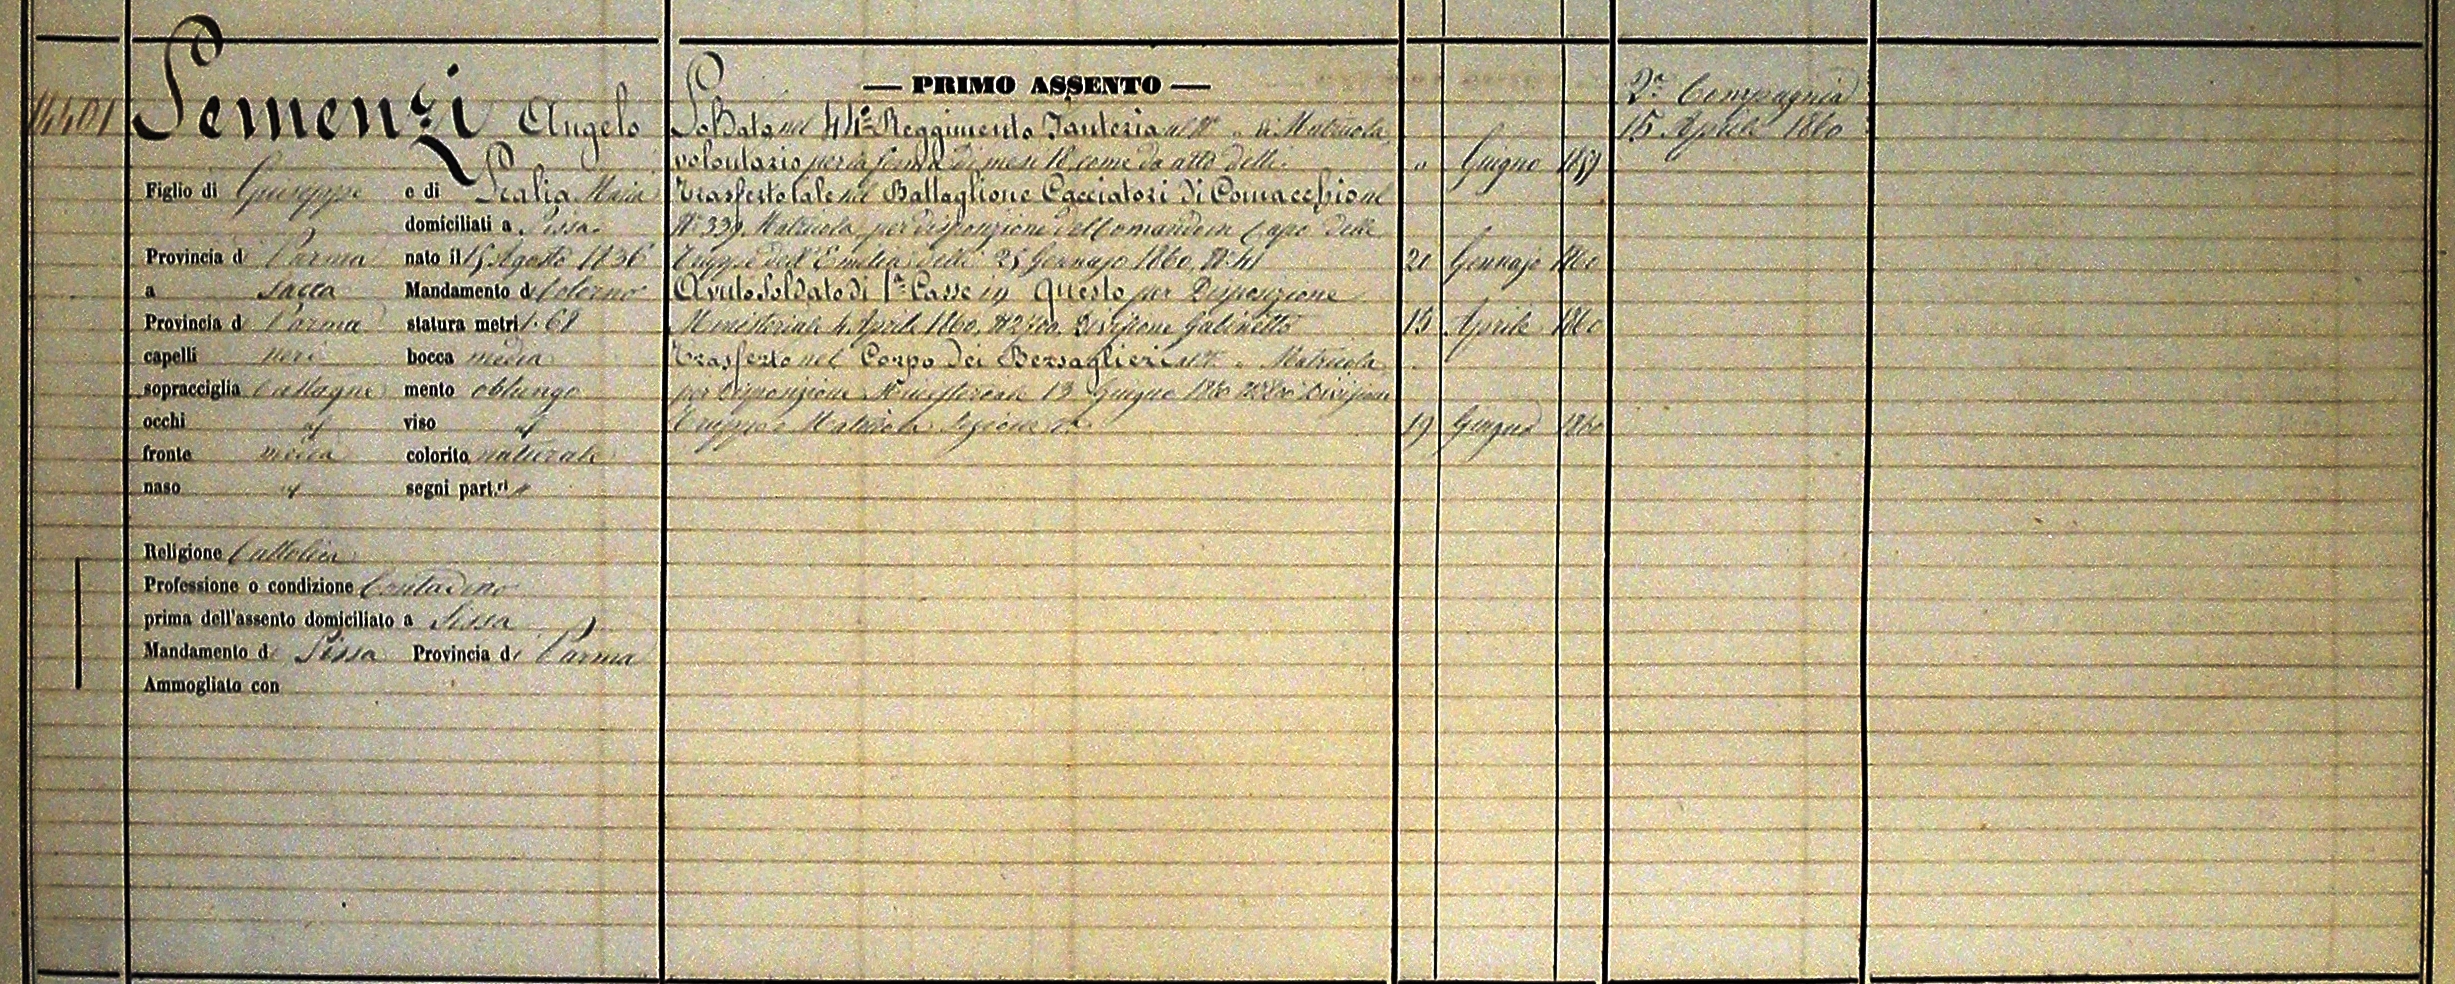 14401
Semenzi Angelo
Figlio di Giuseppe e di Scalia Maria
domiciliati a Sissa
Provincia di Parma nato il 15 Agosto 1836
a Sacca Mandamento di Colorno
Provincia di Parma statura metri 1.68
capelli neri bocca media
sopracciglia castagne mento oblungo
occhi id viso id
fronte media colorito naturale
naso id segni part.ri "
Religione Cattolica
Professione o condizione Contadino
prima dell'assento domiciliato a Sissa
Mandamento di Sissa Provincia di Parma
Ammogliato con
— PRIMO ASSENTO —
Soldato nel 44° Reggimento Fanteria al N° " di Matricola
volontario per la ferma di mesi 18 come da atto delli " Giugno 1859
Trasferto tale nel Battaglione Cacciatori di Comacchio al
N° 339 Matricola per disposizione del Comando in Capo delle
Truppe dell'Emilia delli 25 Gennajo 1860, N° 41 21 Gennajo 1860
Avuto Soldato di 1a Casse in Questo per Disposizione
Ministeriale 4 Aprile 1860, N° Divisione Gabinetto 15 Aprile 1860
Trasferto nel Corpo dei Bersaglieri al N° " Matricola
per disposizione Ministeriale 13 Giugno 1860 Divisione
Truppa Matricola Sezione 19 Giugno 1860
2a Compagnia
15 Aprile 1860